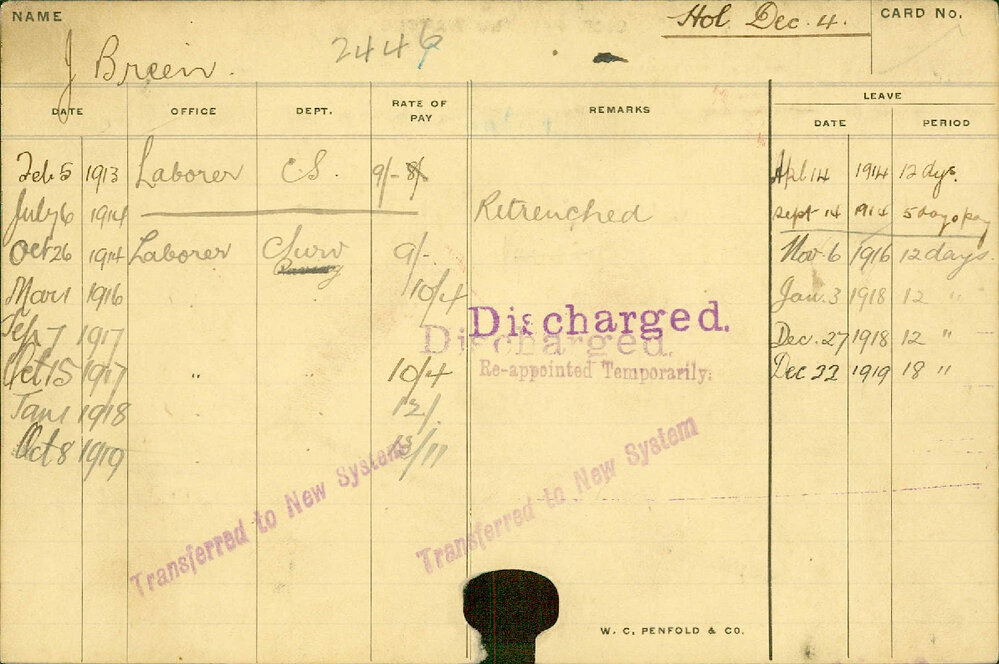 NAME
Hol. Dec. 4.
CARD No.
J Breen.
2446
DATE OFFICE DEPT. RATE OF PAY REMARKS LEAVE
DATE PERIOD
Feb 5 1913 Laborer C.S. 9/- 8/ Apl 14 1914 12 dys.
July 6 1914 Retrenched Sept 14 1914 5 days pay
Oct 26 1914 Laborer Surv 9/- Nov 6 1916 12 days.
Mar 1 1916 10/4 Jan. 3 1918 12 "
Sep 7 1917 Discharged. Dec. 27 1918 12 "
Discharged.
Oct 15 1917 " 10/4 Re-appointed Temporarily. Dec 22 1919 18 "
Jan 1 1918 12/
Oct 8 1919 /11
Transferred to New System
Transferred to New System
W. C. PENFOLD & CO.